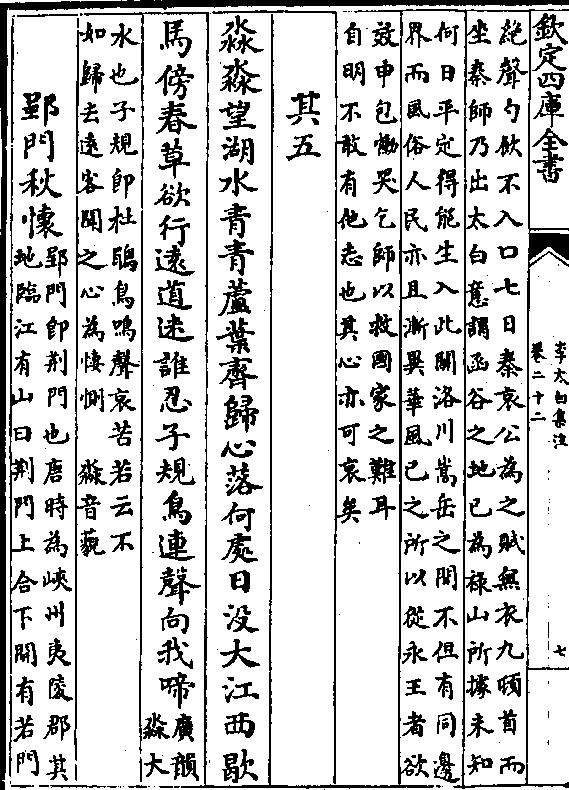 欽定四庫全書
李太白集注
卷二十二
七
絕聲勺飲不入口七日秦哀公為之賦無衣九頓首而
坐秦師乃出太白意謂函谷之地已為祿山所據未知
何日平定得能生入此關洛川嵩岳之間不但有同邊
界而風俗人民亦且漸異華風已之所以從永王者欲
效申包慟哭乞師以救國家之難耳
自明不敢有他志也其心亦可哀矣
其五
淼淼望湖水青青蘆葉齊歸心落何處日没大江西歇
馬傍春草欲行遠道迷誰忍子規鳥連聲向我啼
廣韻
淼大
水也子規即杜鵑鳥鳴聲哀苦若云不
如歸去遠客聞之心為悽惻　淼音藐
郢門秋懷
郢門即荆門也唐時為峽州夷陵郡其
地臨江有山曰荆門上合下開有若門